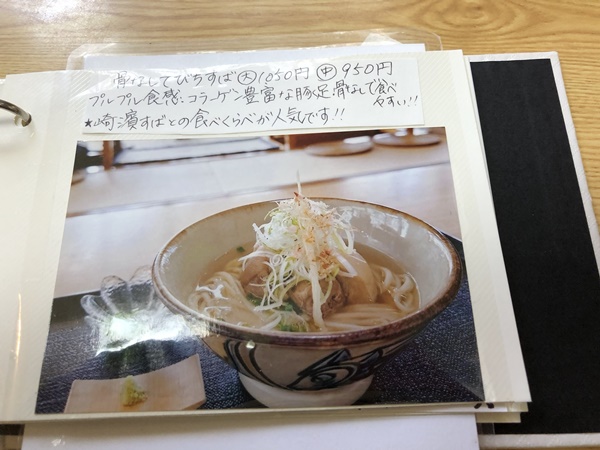 骨なしてびちすば㊅1050円 ㊥950円
プルプル食感、コラーゲン豊富な豚足骨なしで食べ
やすい!!
★崎濱すばとの食べくらべが人気です!!